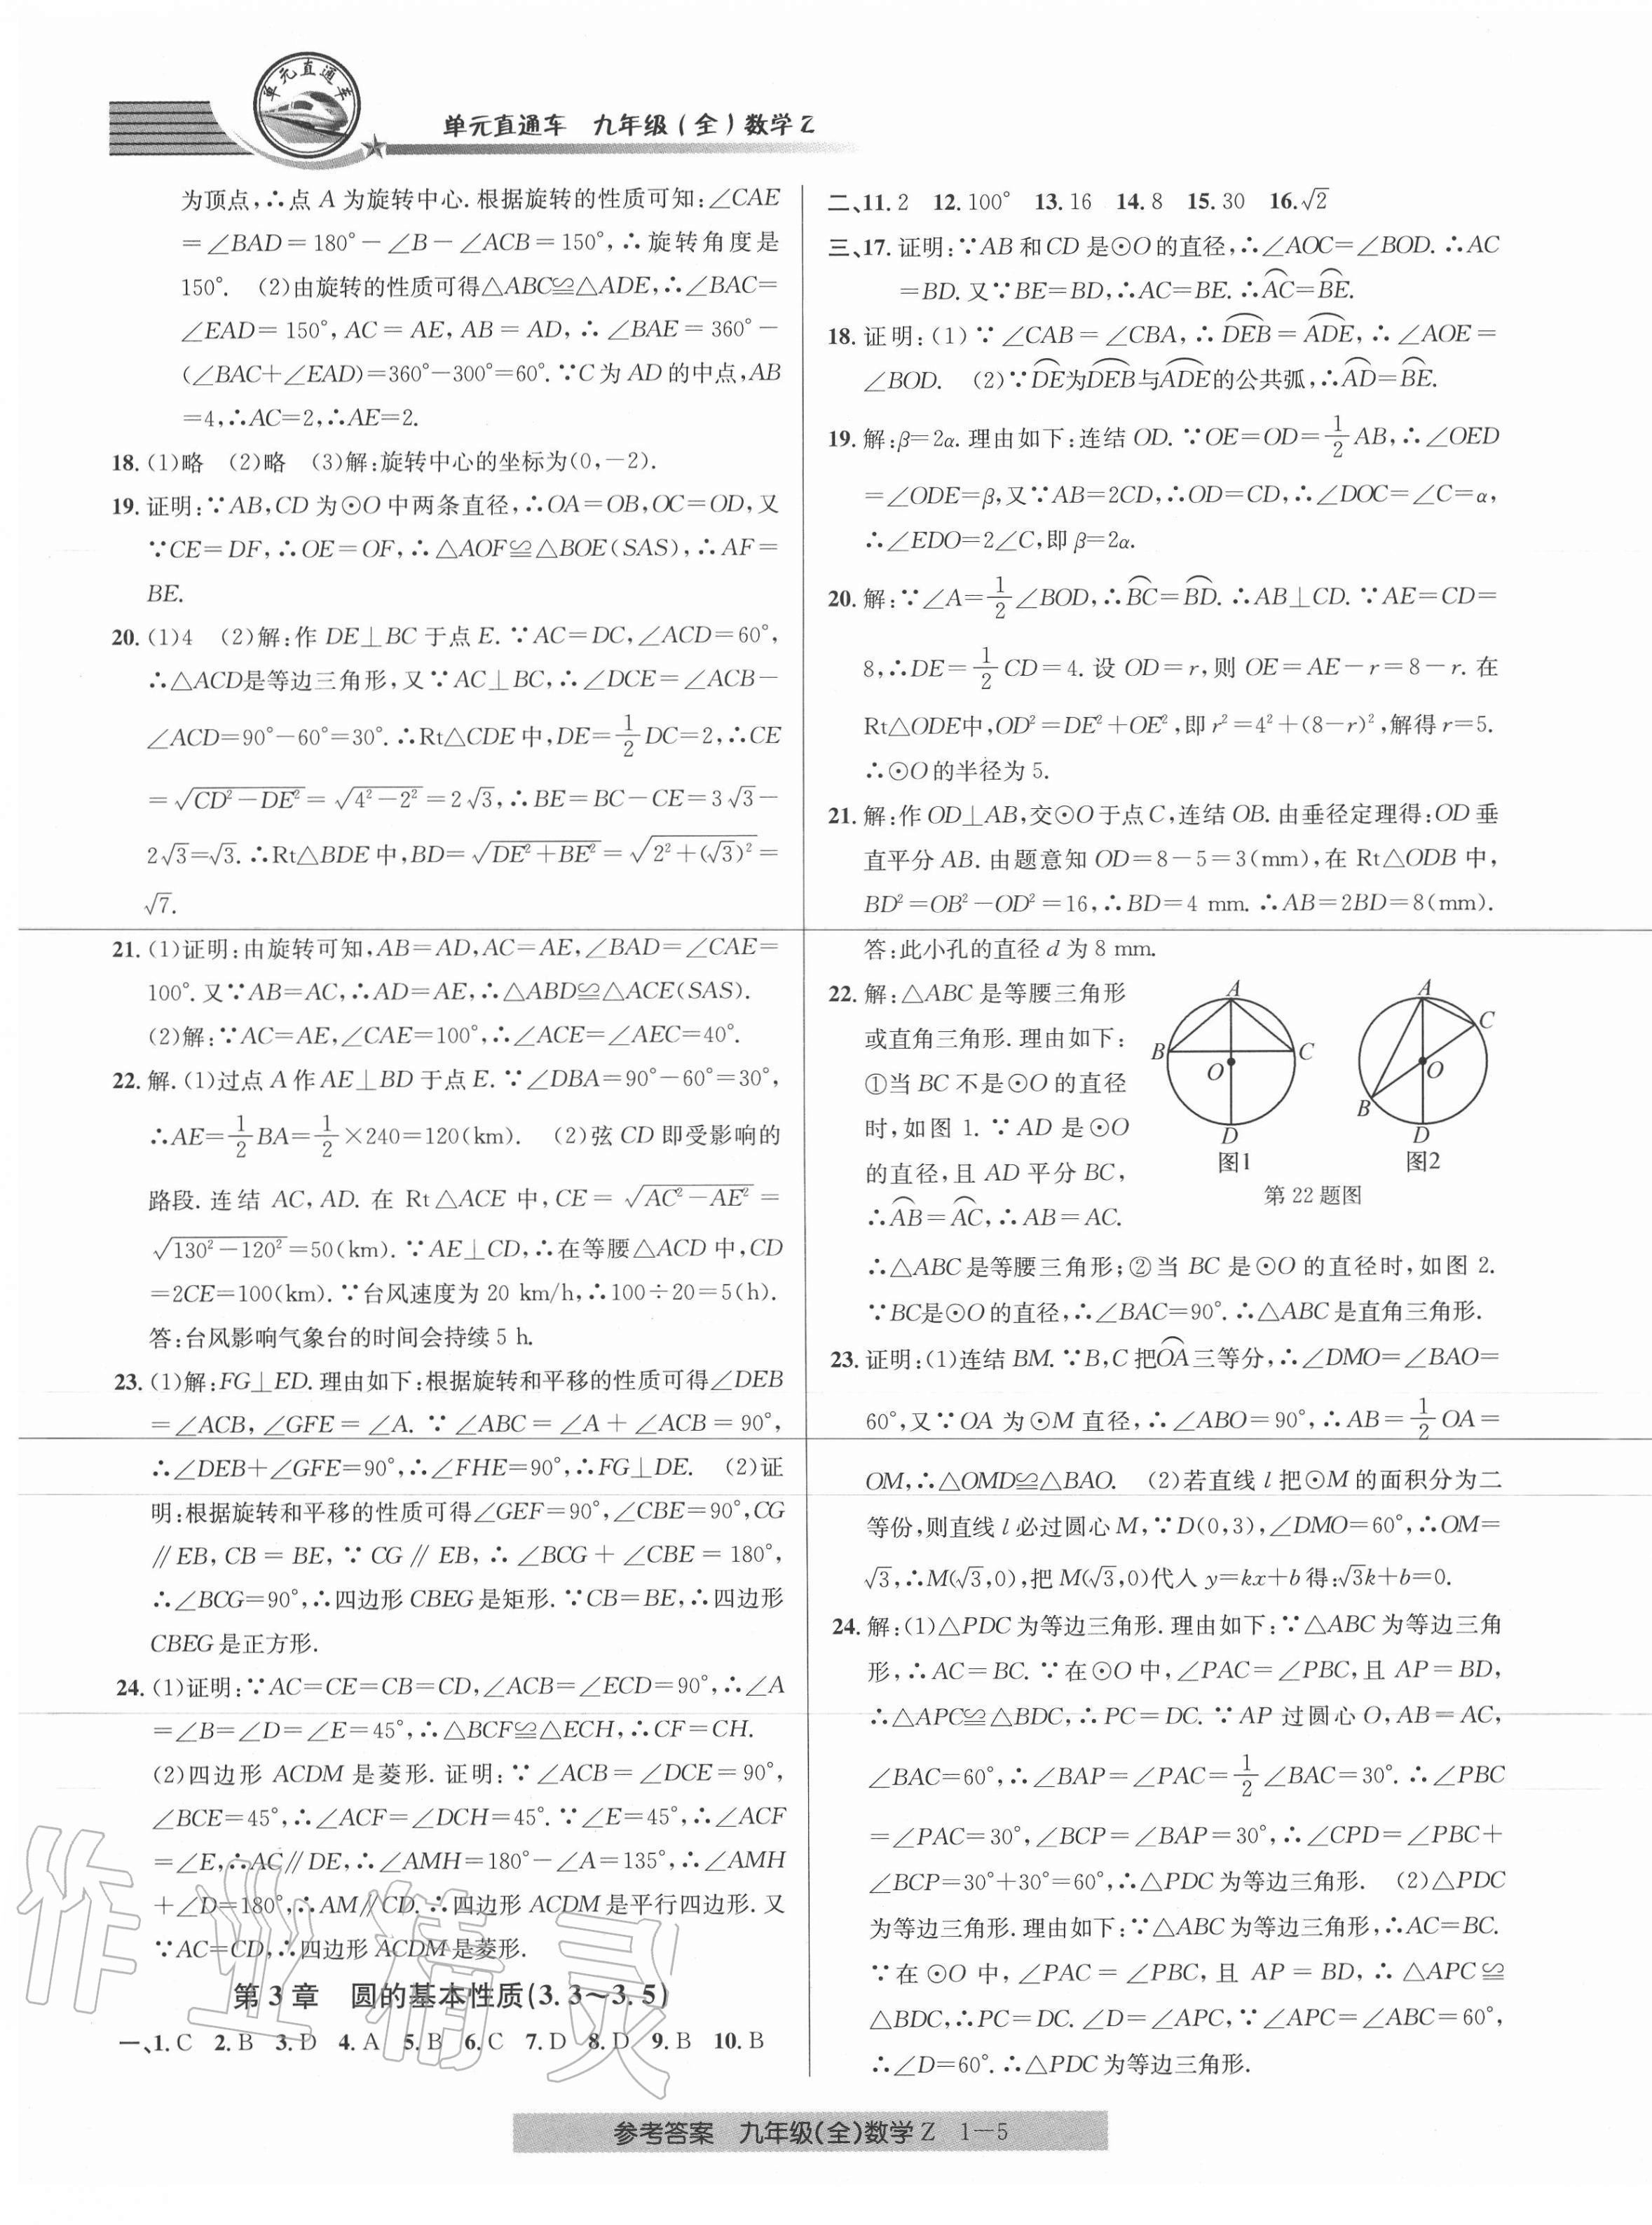 单元直通车
单元直通车 九年级(全)数学Z
为顶点,∴点 A 为旋转中心.根据旋转的性质可知:∠CAE
=∠BAD=180°-∠B-∠ACB=150°,∴旋转角度是
150°. (2)由旋转的性质可得△ABC≌△ADE,∴∠BAC=
∠EAD=150°,AC=AE,AB=AD,∴∠BAE=360°-
(∠BAC+∠EAD)=360°-300°=60°.∵C为AD的中点,AB
=4,∴AC=2,∴AE=2.
18.(1)略 (2)略 (3)解:旋转中心的坐标为(0,-2).
19.证明:∵AB,CD为⊙O中两条直径,∴OA=OB,OC=OD,又
∵CE=DF,∴OE=OF,∴△AOF≌△BOE(SAS),∴AF=
BE.
20.(1)4 (2)解:作DE⊥BC于点E.∵AC=DC,∠ACD=60°,
∴△ACD是等边三角形,又∵AC⊥BC,∴∠DCE=∠ACB-
∠ACD=90°-60°=30°.∴Rt△CDE中,DE=1/2DC=2,∴CE
=√(CD²-DE²)=√(4²-2²)=2√3,∴BE=BC-CE=3√3-
2√3=√3.∴Rt△BDE中,BD=√(DE²+BE²)=√(2²+(√3)²)=
√7.
21.(1)证明:由旋转可知,AB=AD,AC=AE,∠BAD=∠CAE=
100°.又∵AB=AC,∴AD=AE,∴△ABD≌△ACE(SAS).
(2)解:∵AC=AE,∠CAE=100°,∴∠ACE=∠AEC=40°.
22.解.(1)过点A作AE⊥BD于点E.∵∠DBA=90°-60°=30°,
∴AE=1/2BA=1/2×240=120(km). (2)弦CD即受影响的
路段.连结AC,AD.在Rt△ACE中,CE=√(AC²-AE²)=
√(130²-120²)=50(km).∵AE⊥CD,∴在等腰△ACD中,CD
=2CE=100(km).∵台风速度为20 km/h,∴100÷20=5(h).
答:台风影响气象台的时间会持续5 h.
23.(1)解:FG⊥ED.理由如下:根据旋转和平移的性质可得∠DEB
=∠ACB,∠GFE=∠A.∵∠ABC=∠A+∠ACB=90°,
∴∠DEB+∠GFE=90°,∴∠FHE=90°,∴FG⊥DE. (2)证
明:根据旋转和平移的性质可得∠GEF=90°,∠CBE=90°,CG
∥EB,CB=BE,∵CG∥EB,∴∠BCG+∠CBE=180°,
∴∠BCG=90°,∴四边形CBEG是矩形.∵CB=BE,∴四边形
CBEG是正方形.
24.(1)证明:∵AC=CE=CB=CD,∠ACB=∠ECD=90°,∴∠A
=∠B=∠D=∠E=45°,∴△BCF≌△ECH,∴CF=CH.
(2)四边形ACDM是菱形.证明:∵∠ACB=∠DCE=90°,
∠BCE=45°,∴∠ACF=∠DCH=45°.∵∠E=45°,∴∠ACF
=∠E,∴AC∥DE,∴∠AMH=180°-∠A=135°,∴∠AMH
+∠D=180°,∴AM∥CD.∴四边形ACDM是平行四边形.又
∵AC=CD,∴四边形ACDM是菱形.
第3章 圆的基本性质(3.3~3.5)
一、1.C 2.B 3.D 4.A 5.B 6.C 7.D 8.D 9.B 10.B
二、11.2 12.100° 13.16 14.8 15.30 16.√2
三、17.证明:∵AB和CD是⊙O的直径,∴∠AOC=∠BOD.∴AC
=BD.又∵BE=BD,∴AC=BE.∴⌒AC=⌒BE.
18.证明:(1)∵∠CAB=∠CBA,∴⌒DEB=⌒ADE,∴∠AOE=
∠BOD. (2)∵⌒DE为⌒DEB与⌒ADE的公共弧,∴⌒AD=⌒BE.
19.解:β=2α.理由如下:连结OD.∵OE=OD=1/2AB,∴∠OED
=∠ODE=β,又∵AB=2CD,∴OD=CD,∴∠DOC=∠C=α,
∴∠EDO=2∠C,即β=2α.
20.解:∵∠A=1/2∠BOD,∴⌒BC=⌒BD.∴AB⊥CD.∵AE=CD=
8,∴DE=1/2CD=4.设OD=r,则OE=AE-r=8-r.在
Rt△ODE中,OD²=DE²+OE²,即r²=4²+(8-r)²,解得r=5.
∴⊙O的半径为5.
21.解:作OD⊥AB,交⊙O于点C,连结OB.由垂径定理得:OD垂
直平分AB.由题意知OD=8-5=3(mm),在Rt△ODB中,
BD²=OB²-OD²=16,∴BD=4 mm.∴AB=2BD=8(mm).
答:此小孔的直径d为8 mm.
22.解:△ABC是等腰三角形
或直角三角形.理由如下:
①当BC不是⊙O的直径
时,如图1.∵AD是⊙O
的直径,且AD平分BC,
∴⌒AB=⌒AC,∴AB=AC.
A
B
C
O
D
图1
A
C
O
B
D
图2
第22题图
∴△ABC是等腰三角形;②当BC是⊙O的直径时,如图2.
∵BC是⊙O的直径,∴∠BAC=90°.∴△ABC是直角三角形.
23.证明:(1)连结BM.∵B,C把⌒OA三等分,∴∠DMO=∠BAO=
60°,又∵OA为⊙M直径,∴∠ABO=90°,∴AB=1/2OA=
OM,∴△OMD≌△BAO. (2)若直线l把⊙M的面积分为二
等份,则直线l必过圆心M,∵D(0,3),∠DMO=60°,∴OM=
√3,∴M(√3,0),把M(√3,0)代入y=kx+b得:√3k+b=0.
24.解:(1)△PDC为等边三角形.理由如下:∵△ABC为等边三角
形,∴AC=BC.∵在⊙O中,∠PAC=∠PBC,且AP=BD,
∴△APC≌△BDC,∴PC=DC.∵AP过圆心O,AB=AC,
∠BAC=60°,∴∠BAP=∠PAC=1/2∠BAC=30°.∴∠PBC
=∠PAC=30°,∠BCP=∠BAP=30°,∴∠CPD=∠PBC+
∠BCP=30°+30°=60°,∴△PDC为等边三角形. (2)△PDC
为等边三角形.理由如下:∵△ABC为等边三角形,∴AC=BC.
∵在⊙O中,∠PAC=∠PBC,且AP=BD,∴△APC≌
△BDC,∴PC=DC.∠D=∠APC,∵∠APC=∠ABC=60°,
∴∠D=60°.∴△PDC为等边三角形.
作业精灵
参考答案 九年级(全)数学Z 1-5